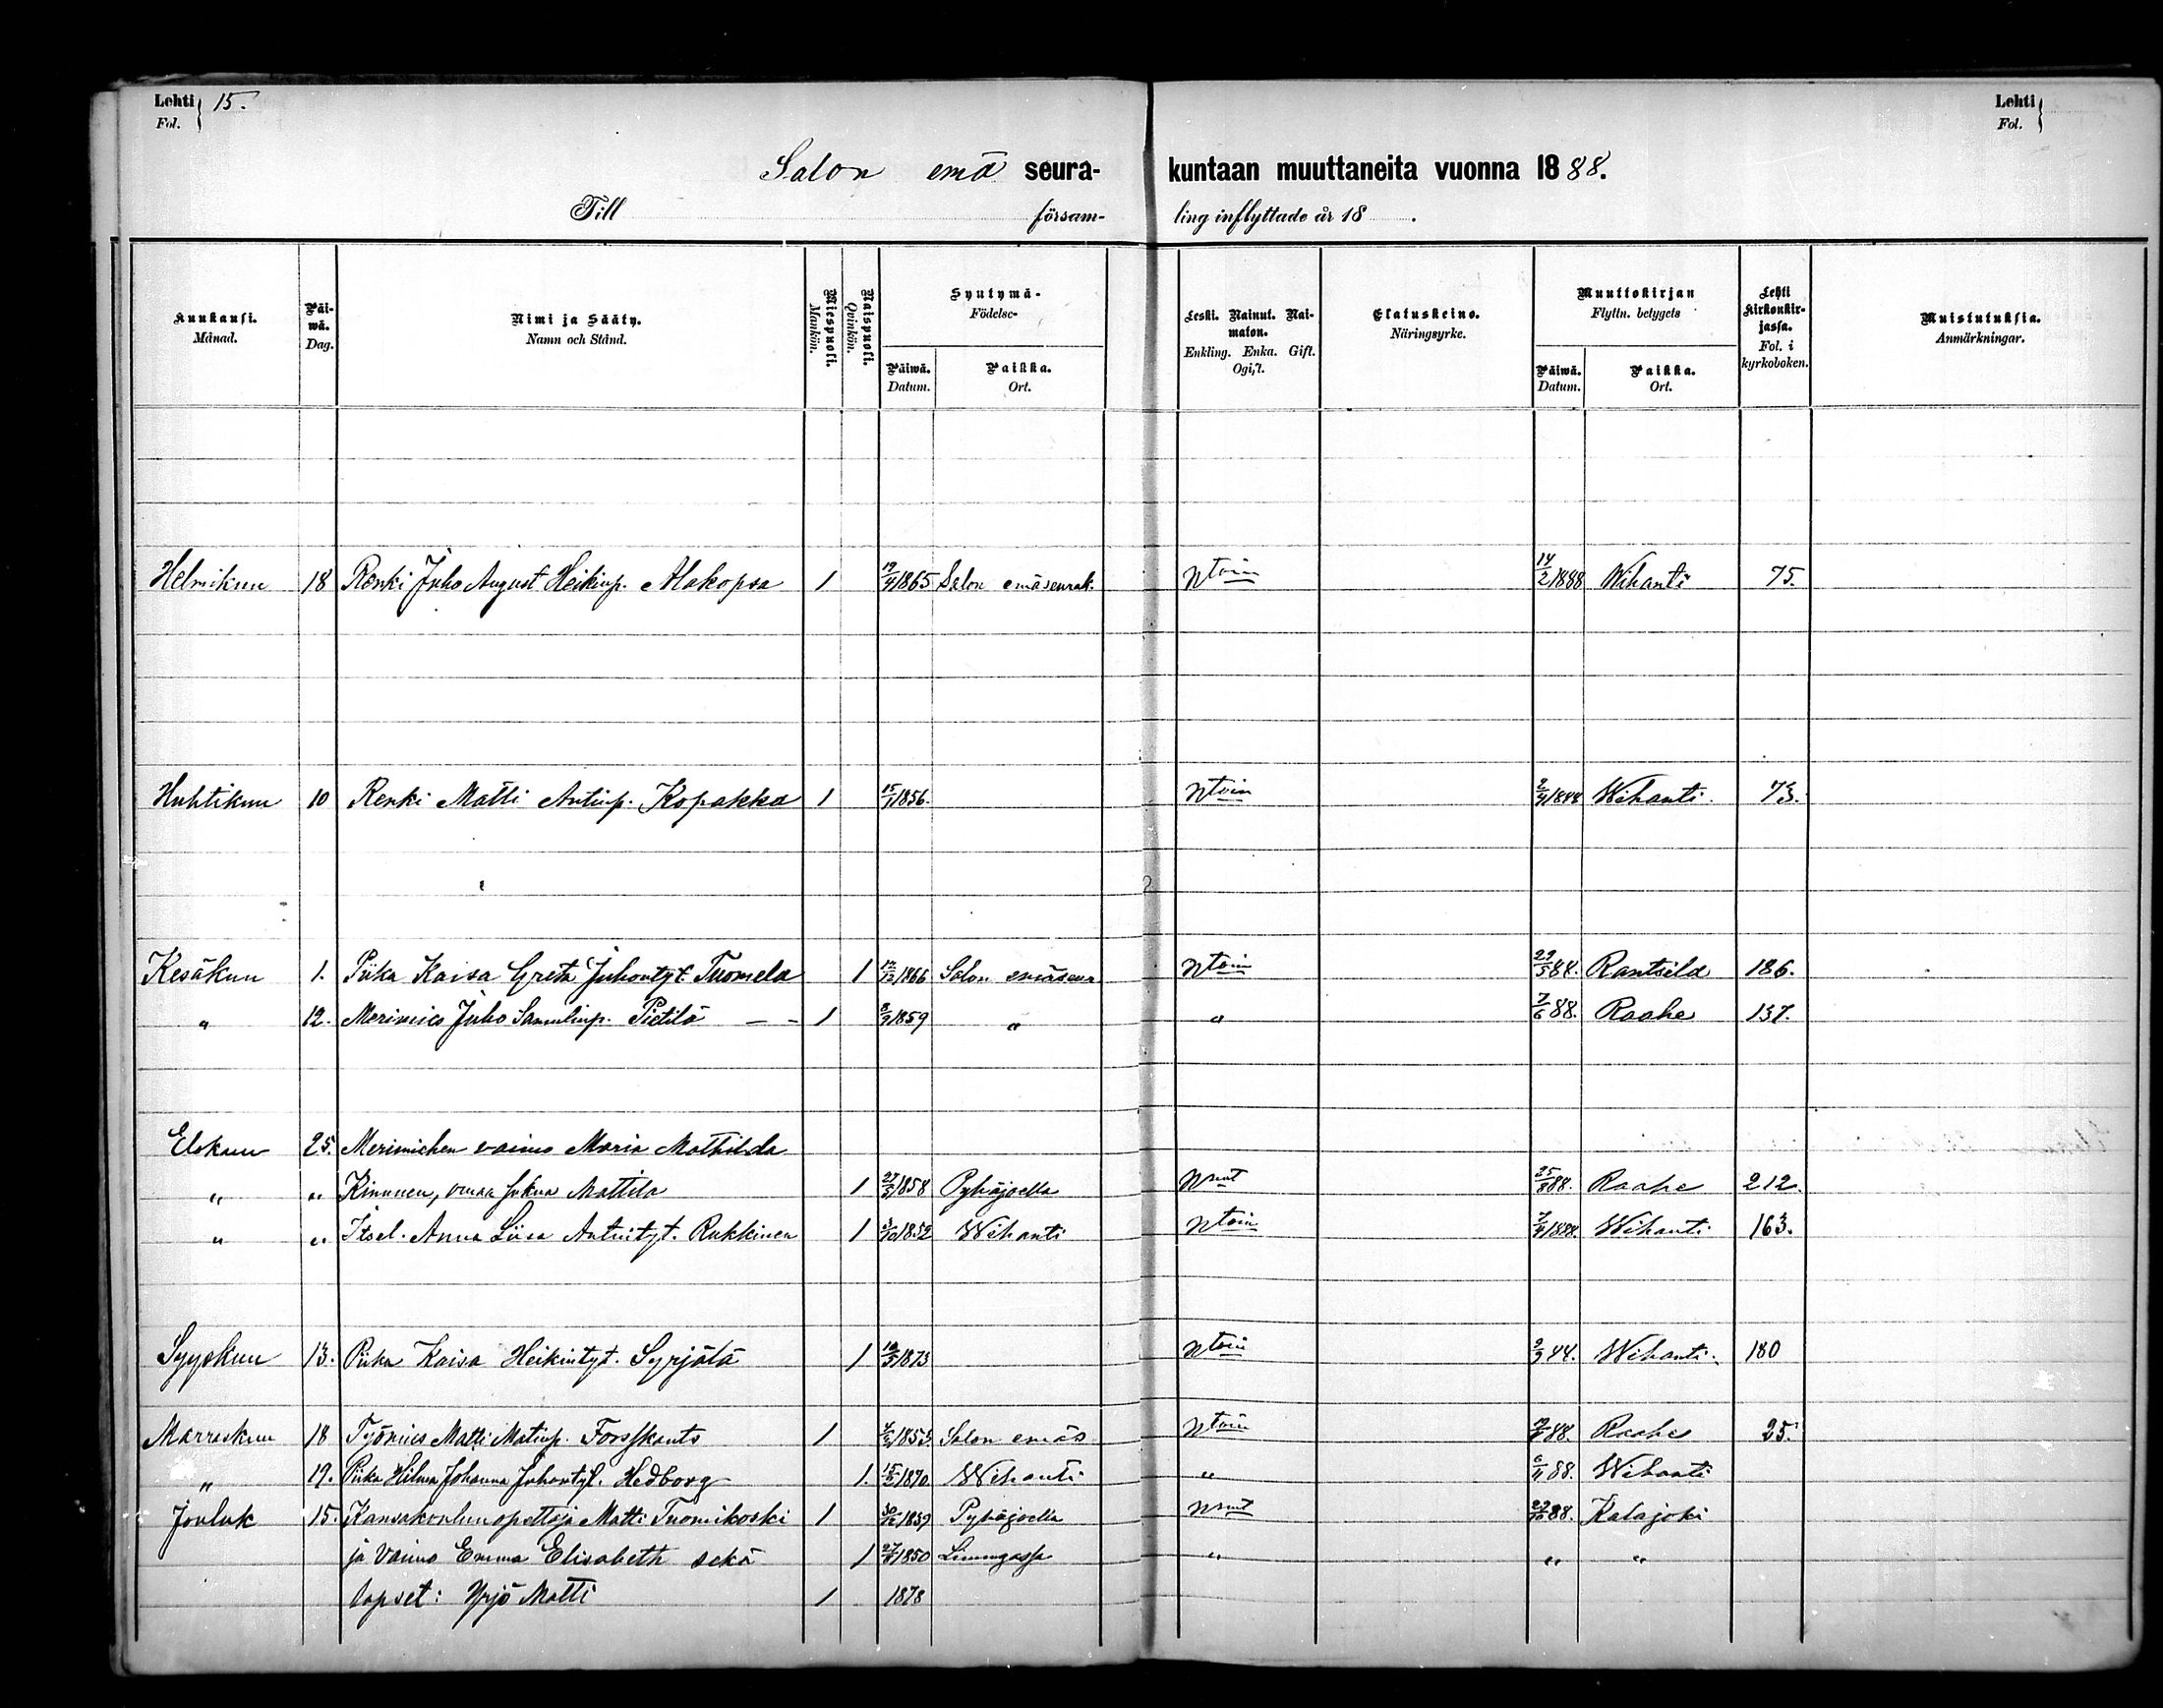 Lehti 15.
Fol.
Lehti
Fol.
Salon emä seura- kuntaan muuttaneita vuonna 1888.
Till försam- ling inflyttade år 18 .
Kuukausi. Månad.
Päi-wä. Dag.
Nimi ja Sääty. Namn och Stånd.
Miespuoli. Mankön.
Naispuoli. Qvinkön.
Syntymä- Födelse-
Päiwä. Datum.
Paikka. Ort.
Leski. Nainut. Nai-maton. Enkling. Enka. Gift. Ogift.
Elatuskeino. Näringsyrke.
Muuttokirjan Flyttn. betygets
Päiwä. Datum.
Paikka. Ort.
Lehti Kirkonkir-jassa. Fol. i kyrkoboken.
Muistutuksia. Anmärkningar.
Helmikuu 18 Renki Juho August Heikinp. Alakopsa 1 19/4 1865 Salon emäseurak. Ntoin 14/2 1888 Wihanti 75.
Huhtikuu 10 Renki Matti Antinp. Kopakka 1 15/1 1856. Ntoin 1888 Wihanti. 73.
Kesäkuu 1. Piika Kaisa Greta Juhontyt. Tuomela 1 1866 Salon emäseura Ntoin 29/5 88. Rantsila 186.
" 12. Merimies Juho Samulinp. Pietilä 1 1859 " " 7/6 88. Raahe 137.
Elokuu 25. Merimiehen vaimo Maria Mathilda
" " Kinnunen, omaa sukua Mattila 1 1858 Pyhäjoella Nnut 25/8 88. Raahe 212.
" " Itsel. Anna Liisa Antintyt. Rukkinen 1 1852 Wihanti Ntoin 1888. Wihanti 163.
Syyskuu 13. Piika Kaisa Heikintyt. Syrjälä 1 1873 Ntoin 88. Wihanti. 180
Marraskuu 18 Työmies Matti Matinp. Forsskants 1 1853. Salon emäs Ntoin 88. Raahe 25.
" 19. Piika Hilma Johanna Juhontyt. Hedborg 1. 1870. Wihanti " 88. Wihanti
Jouluk 15. Kansakoulunopettaja Matti Tuomikoski 1 1839 Pyhäjoella Nnut 88. Kalajoki
ja vaimo Emma Elisabeth sekä 1 1850 Limingassa " " "
lapset: Yrjö Matti 1 1878